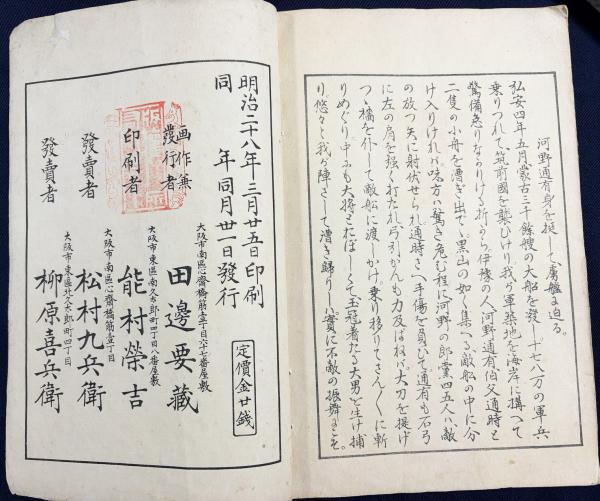 河野通有身を挺して虜艦に迫る。
弘安四年五月蒙古三千餘艘の大船を發し十七八万の軍兵
乗りつれて、筑前國を襲ひけり。我が軍築地を海岸に構へて
警備怠りなかりける折から、伊豫の人河野通有、伯父通時と
二隻の小舟を漕ぎ出で、黒山の如く集へる、敵船の中に分
け入りければ、味方は驚き危む程に河野の郎黨四五人は敵
の放つ矢に射伏せられ通時さへ手傷を負ひぬ通有も石弓
に左の肩を強く打たれ、弓引かんも力及ばねば、大刀を提げ
つゝ檣を仆して敵船に渡しかけ、乗り移りてさんぐに斬
りめぐり、中にも大将とおぼしくて玉冠著たる大男を生け捕
り悠々と我が陣さして漕ぎ歸りしハ實に不敵の振舞にこそ。
明治二十八年三月廿五日印刷
同年同月卅一日發行
定價金廿銭
畫作兼
發行者
大阪市南區心齋橋筋壹丁目六十七番屋敷
田邊要藏
印刷者
大阪市東區南久太郎町四丁目八番屋敷
能村榮吉
發賣者
大阪市南區心齋橋筋壹丁目
松村九兵衛
發賣者
大阪市東區北久太郎町四丁目
柳原喜兵衛